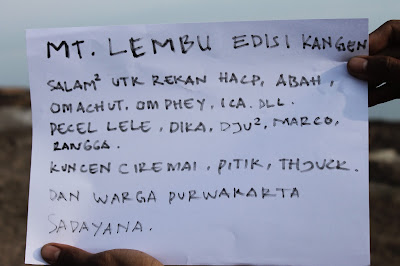 MT. LEMBU EDISI KANGEN
SALAM² UTK REKAN HACP, ABAH,
OMACHUT. OMPHEY, ICA. DLL.
PECEL LELE, DIKA, DJU², MARCO,
RANGGA.
KUNCEN CIREMAI, PITIK, THJUCK.
DAN WARGA PURWAKARTA
SADAYANA.